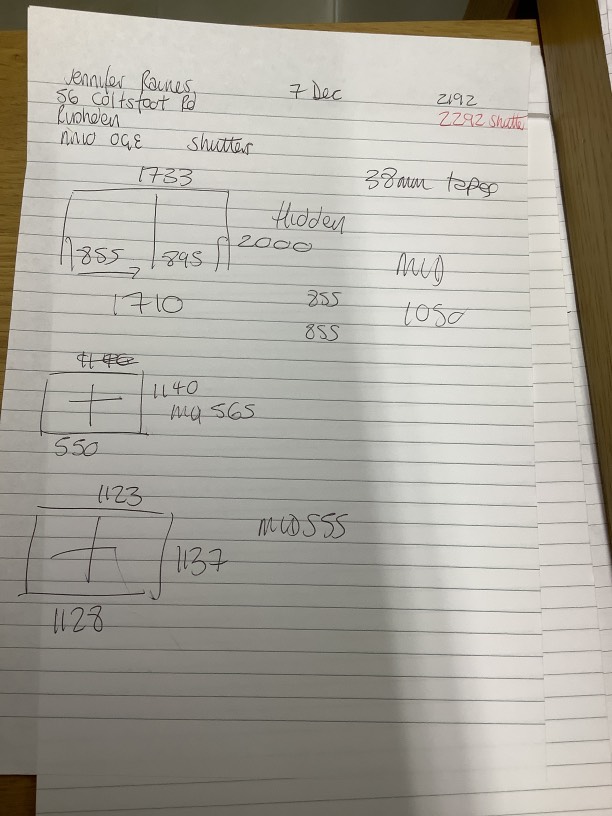 Jennifer Raines 7 Dec 2192
56 Coltsfoot Rd 2292 shutter
Rushden
NN10 0GE shutters
1733 38mm tapes
Hidden
855 895 2000
MID
1710 855 1050
855
1140
MID 565
550
1123
MID 555
1137
1128